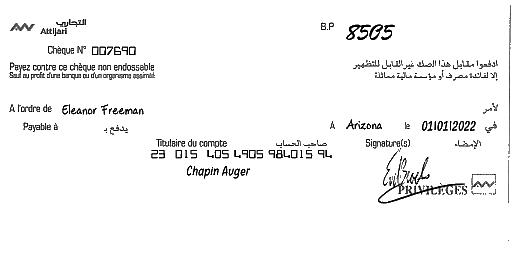 التجاري
Attijari
B.P 8505
Chèque N° 007690
Payez contre ce chèque non endossable
Sauf au profit d'une banque ou d'un organisme assimilé
ادفعوا مقابل هذا الصك غير القابل للتظهير
إلا لفائدة مصرف أو مؤسسة مالية مماثلة
A l'ordre de Eleanor Freeman لأمر
Payable à يدفع بـ A Arizona le 01/01/2022 في
Titulaire du compte صاحب الحساب Signature(s) الإمضاء
23 015 405 4905 984015 94
Chapin Auger
PRIVILÈGES